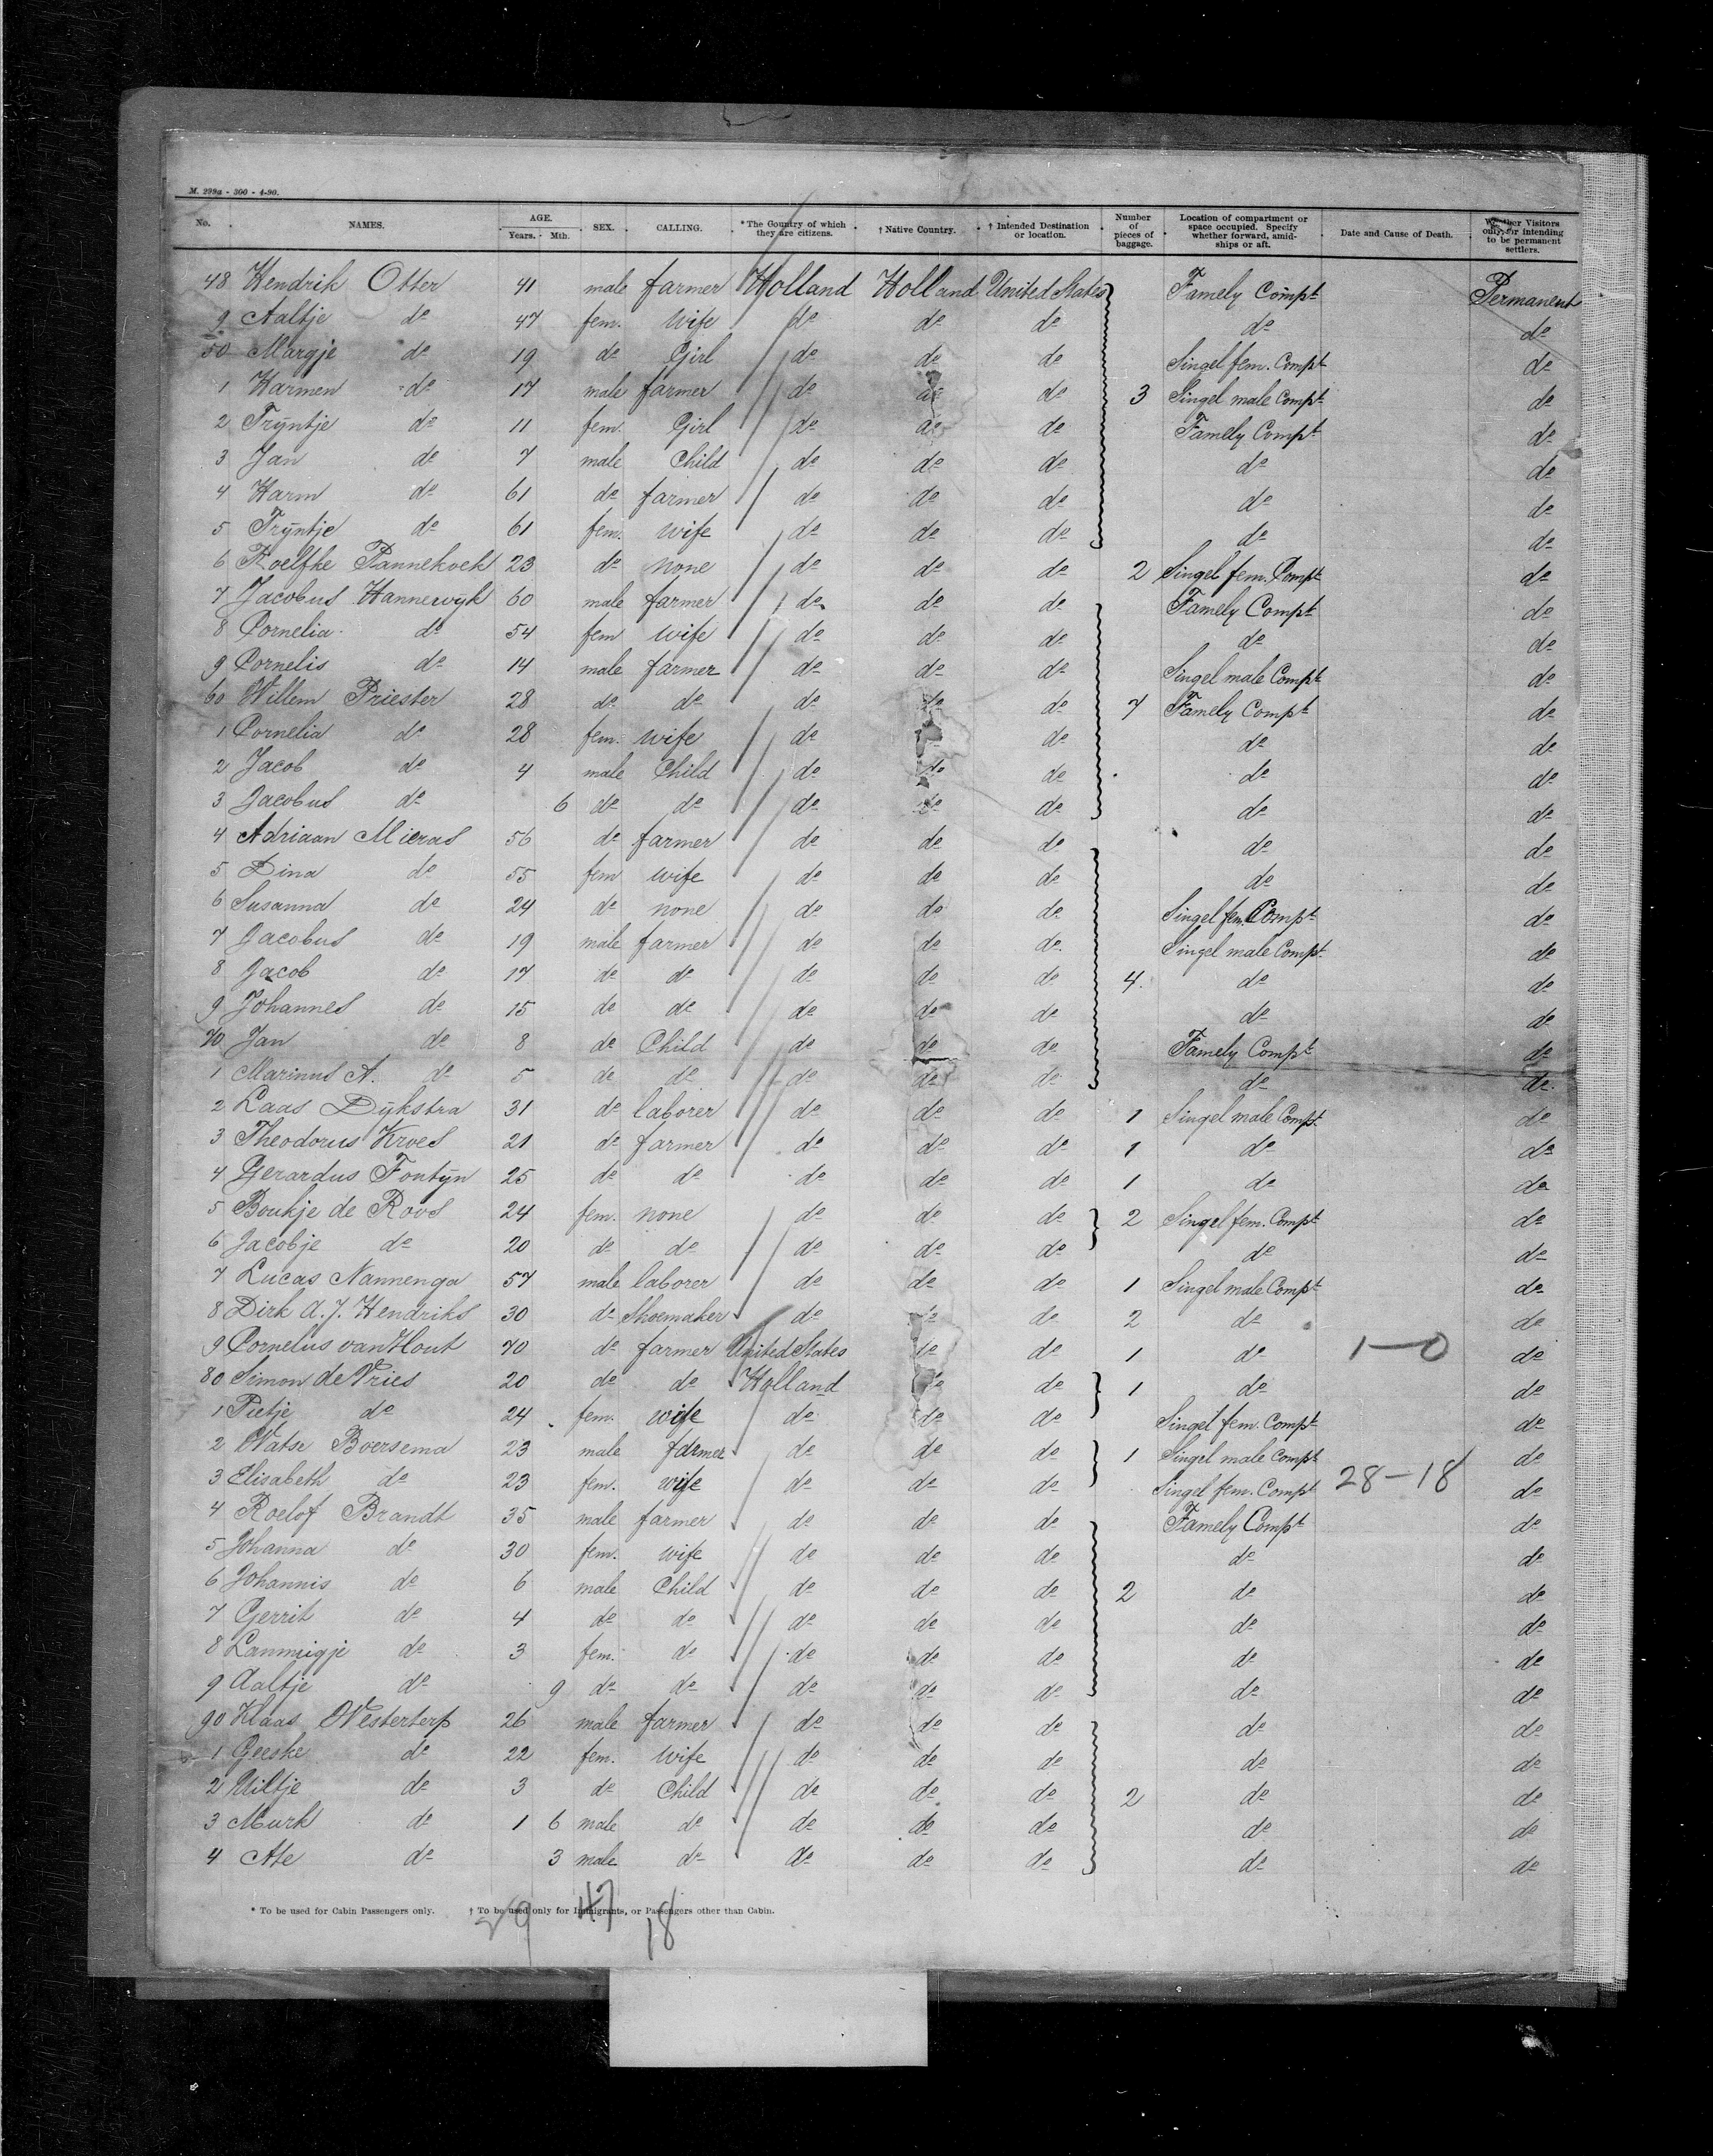 M. 299a - 300 - 4-90.
No. NAMES. AGE. Years. Mth. SEX. CALLING. * The Country of which they are citizens. † Native Country. † Intended Destination or location. Number of pieces of baggage. Location of compartment or space occupied. Specify whether forward, amidships or aft. Date and Cause of Death. Whether Visitors only, or intending to be permanent settlers.
48 Hendrik Otter 41 male farmer Holland Holland United States Famely Compt Permanent
9 Aaltje do 47 fem. Wife do do do do do
50 Margje do 19 do Girl do do do Singel fem. Compt do
1 Harmen do 17 male farmer do do do 3 Singel male Compt do
2 Tryntje do 11 fem. Girl do do do Famely Compt do
3 Jan do 7 male Child do do do do do
4 Harm do 61 do farmer do do do do do
5 Tryntje do 61 fem. wife do do do do do
6 Roelfke Pannekoek 23 do none do do do 2 Singel fem. Compt do
7 Jacobus Hannewyk 60 male farmer do do do Famely Compt do
8 Cornelia do 54 fem wife do do do do do
9 Cornelis do 14 male farmer do do do Singel male Compt do
60 Willem Priester 28 do do do do do 7 Famely Compt do
1 Cornelia do 28 fem. wife do do do do
2 Jacob do 4 male Child do do do do do
3 Jacobus do 6 do do do do do do do
4 Adriaan Mieras 56 do farmer do do do do do
5 Dina do 55 fem wife do do do do do
6 Susanna do 24 do none do do do Singel fem. Compt do
7 Jacobus do 19 male farmer do do do Singel male Compt do
8 Jacob do 17 do do do do do 4. do do
9 Johannes do 15 do do do do do do do
70 Jan do 8 do Child do do do Famely Compt do
1 Marinus A. do 5 do do do do do do do
2 Laas Dykstra 31 do laborer do do do 1 Singel male Compt do
3 Theodorus Kroes 21 do farmer do do do 1 do do
4 Gerardus Fontyn 25 do do do do do 1 do do
5 Boukje de Roos 24 fem. none do do do 2 Singel fem. Compt do
6 Jacobje do 20 do do do do do do do
7 Lucas Nannenga 57 male laborer do do do 1 Singel male Compt do
8 Dirk A. J. Hendriks 30 do Shoemaker do do do 2 do do
9 Cornelus van Hout 70 do farmer United States do do 1 do 1-0 do
80 Simon de Vries 20 do do Holland do do 1 do do
1 Pietje do 24 fem. wife do do do Singel fem. Compt do
2 Watse Boersema 23 male farmer do do do 1 Singel male Compt do
3 Elisabeth do 23 fem. wife do do do Singel fem. Compt 28-18 do
4 Roelof Brandt 35 male farmer do do do Famely Compt do
5 Johanna do 30 fem. wife do do do do do
6 Johannis do 6 male Child do do do 2 do do
7 Gerrit do 4 do do do do do do do
8 Lammigje do 3 fem. do do do do do do
9 Aaltje do 9 do do do do do do do
90 Klaas Westerterp 26 male farmer do do do do do
1 Geeske do 22 fem. wife do do do do do
2 Wiltje do 3 do Child do do do 2 do do
3 Murk do 1 6 male do do do do do do
4 Ate do 3 male do do do do do do
* To be used for Cabin Passengers only. † To be used only for Immigrants, or Passengers other than Cabin.
29 47 18